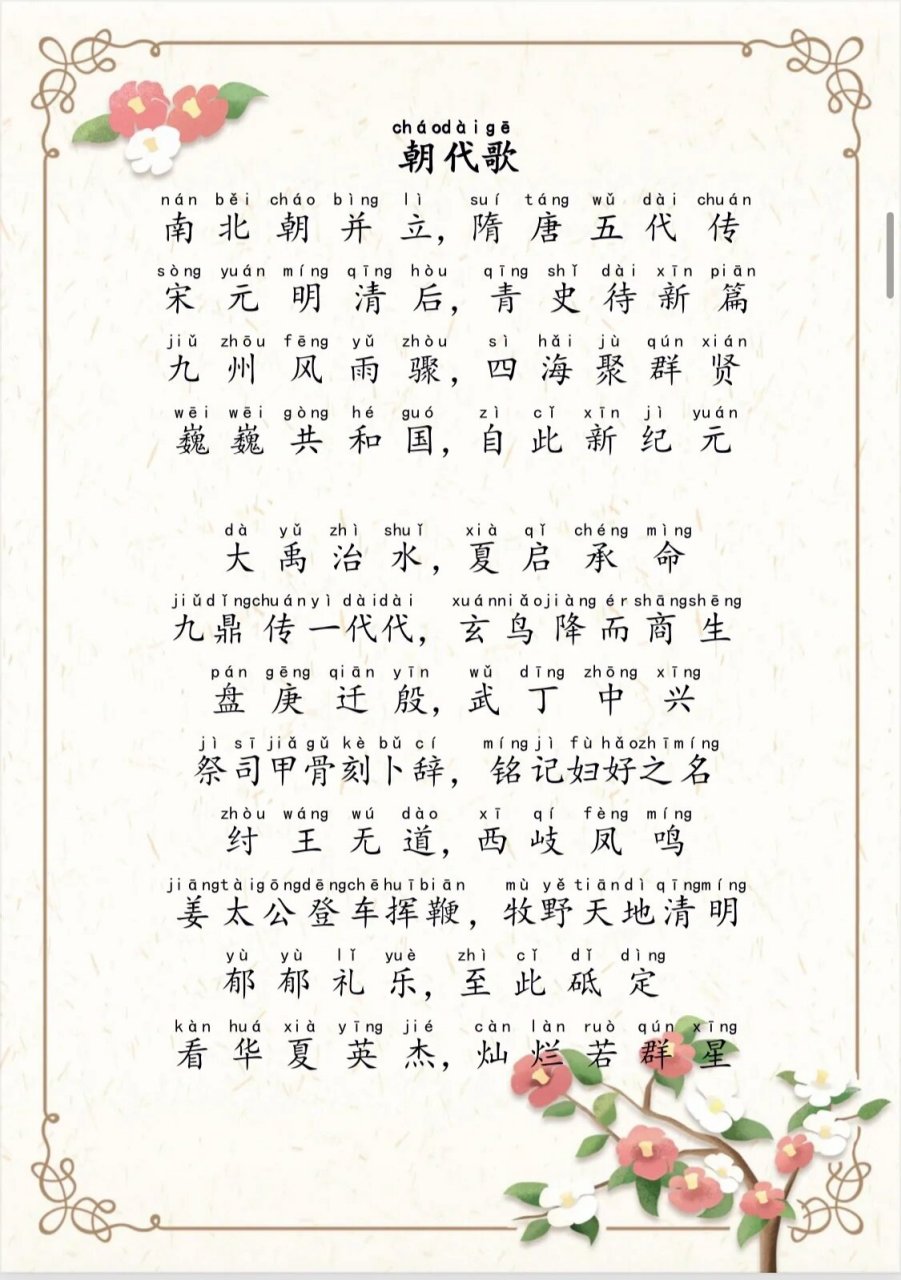 cháodàigē
朝代歌
nán běi cháo bìng lì suí táng wǔ dài chuán
南北朝并立，隋唐五代传
sòng yuán míng qīng hòu qīng shǐ dài xīn piān
宋元明清后，青史待新篇
jiǔ zhōu fēng yǔ zhòu sì hǎi jù qún xián
九州风雨骤，四海聚群贤
wēi wēi gòng hé guó zì cǐ xīn jì yuán
巍巍共和国，自此新纪元
dà yǔ zhì shuǐ xià qǐ chéng mìng
大禹治水，夏启承命
jiǔdǐngchuányì dàidài xuánniǎojiàng érshāngshēng
九鼎传一代代，玄鸟降而商生
pán gēng qiān yīn wǔ dīng zhōng xīng
盘庚迁殷，武丁中兴
jì sī jiǎgǔ kè bǔ cí míngjì fùhǎozhīmíng
祭司甲骨刻卜辞，铭记妇好之名
zhòu wáng wú dào xī qí fèng míng
纣王无道，西岐凤鸣
jiāngtàigōngdēngchēhuībiān mù yětiāndì qīngmíng
姜太公登车挥鞭，牧野天地清明
yù yù lǐ yuè zhì cǐ dǐ dìng
郁郁礼乐，至此砥定
kàn huá xià yīng jié càn làn ruò qún xīng
看华夏英杰，灿烂若群星